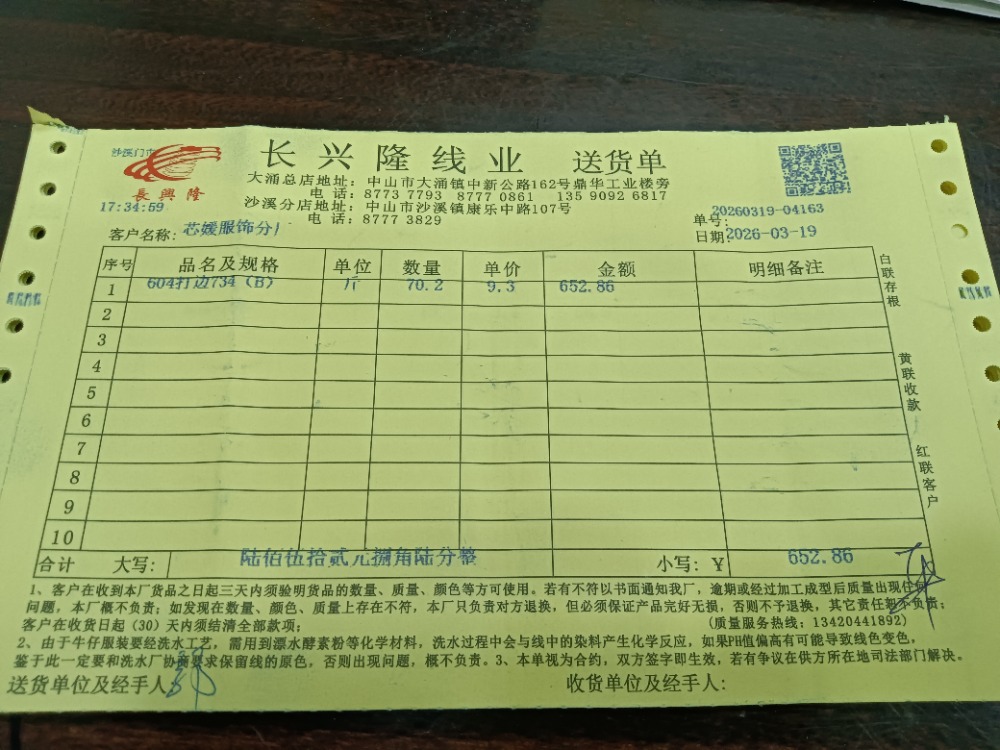 沙溪门市
長興隆
长兴隆线业 送货单
大涌总店地址：中山市大涌镇中新公路162号鼎华工业楼旁
电话：8773 7793 8777 0861 135 9092 6817
沙溪分店地址：中山市沙溪镇康乐中路107号
电话：8777 3829
17:34:59
单号：20260319-04163
客户名称：芯媛服饰分厂
日期：2026-03-19
序号 品名及规格 单位 数量 单价 金额 明细备注
1 604打边734（B） 斤 70.2 9.3 652.86
2
3
4
5
6
7
8
9
10
合计 大写：陆佰伍拾贰元捌角陆分整 小写：￥ 652.86
白联存根
黄联收款
红联客户
1、客户在收到本厂货品之日起三天内须验明货品的数量、质量、颜色等方可使用。若有不符以书面通知我厂，逾期或经过加工成型后质量出现任何
问题，本厂概不负责；如发现在数量、颜色、质量上存在不符，本厂只负责对方退换，但必须保证产品完好无损，否则不予退换，其它责任概不负责；
客户在收货日起（30）天内须结清全部款项； （质量服务热线：13420441892）
2、由于牛仔服装要经洗水工艺，需用到漂水酵素粉等化学材料，洗水过程中会与线中的染料产生化学反应，如果PH值偏高有可能导致线色变色，
鉴于此一定要和洗水厂协商要求保留线的原色，否则出现问题，概不负责。3、本单视为合约，双方签字即生效，若有争议在供方所在地司法部门解决。
送货单位及经手人： 收货单位及经手人：